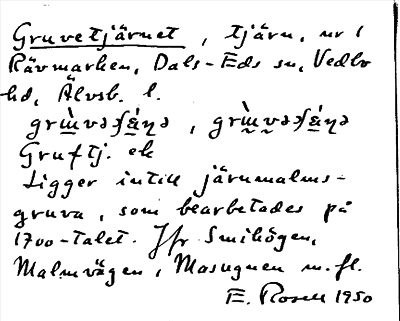 Gruvetjärnet, tjärn, nr 1
Rävmarken, Dals-Eds sn, Vedbo
hd, Älvsb. l.
Gruftj. ek
Ligger intill järnmalms-
gruva, som bearbetades på
1700-talet. Jfr Smihögen,
Malmvägen, Masugnen m.fl.
E. Rosell 1950